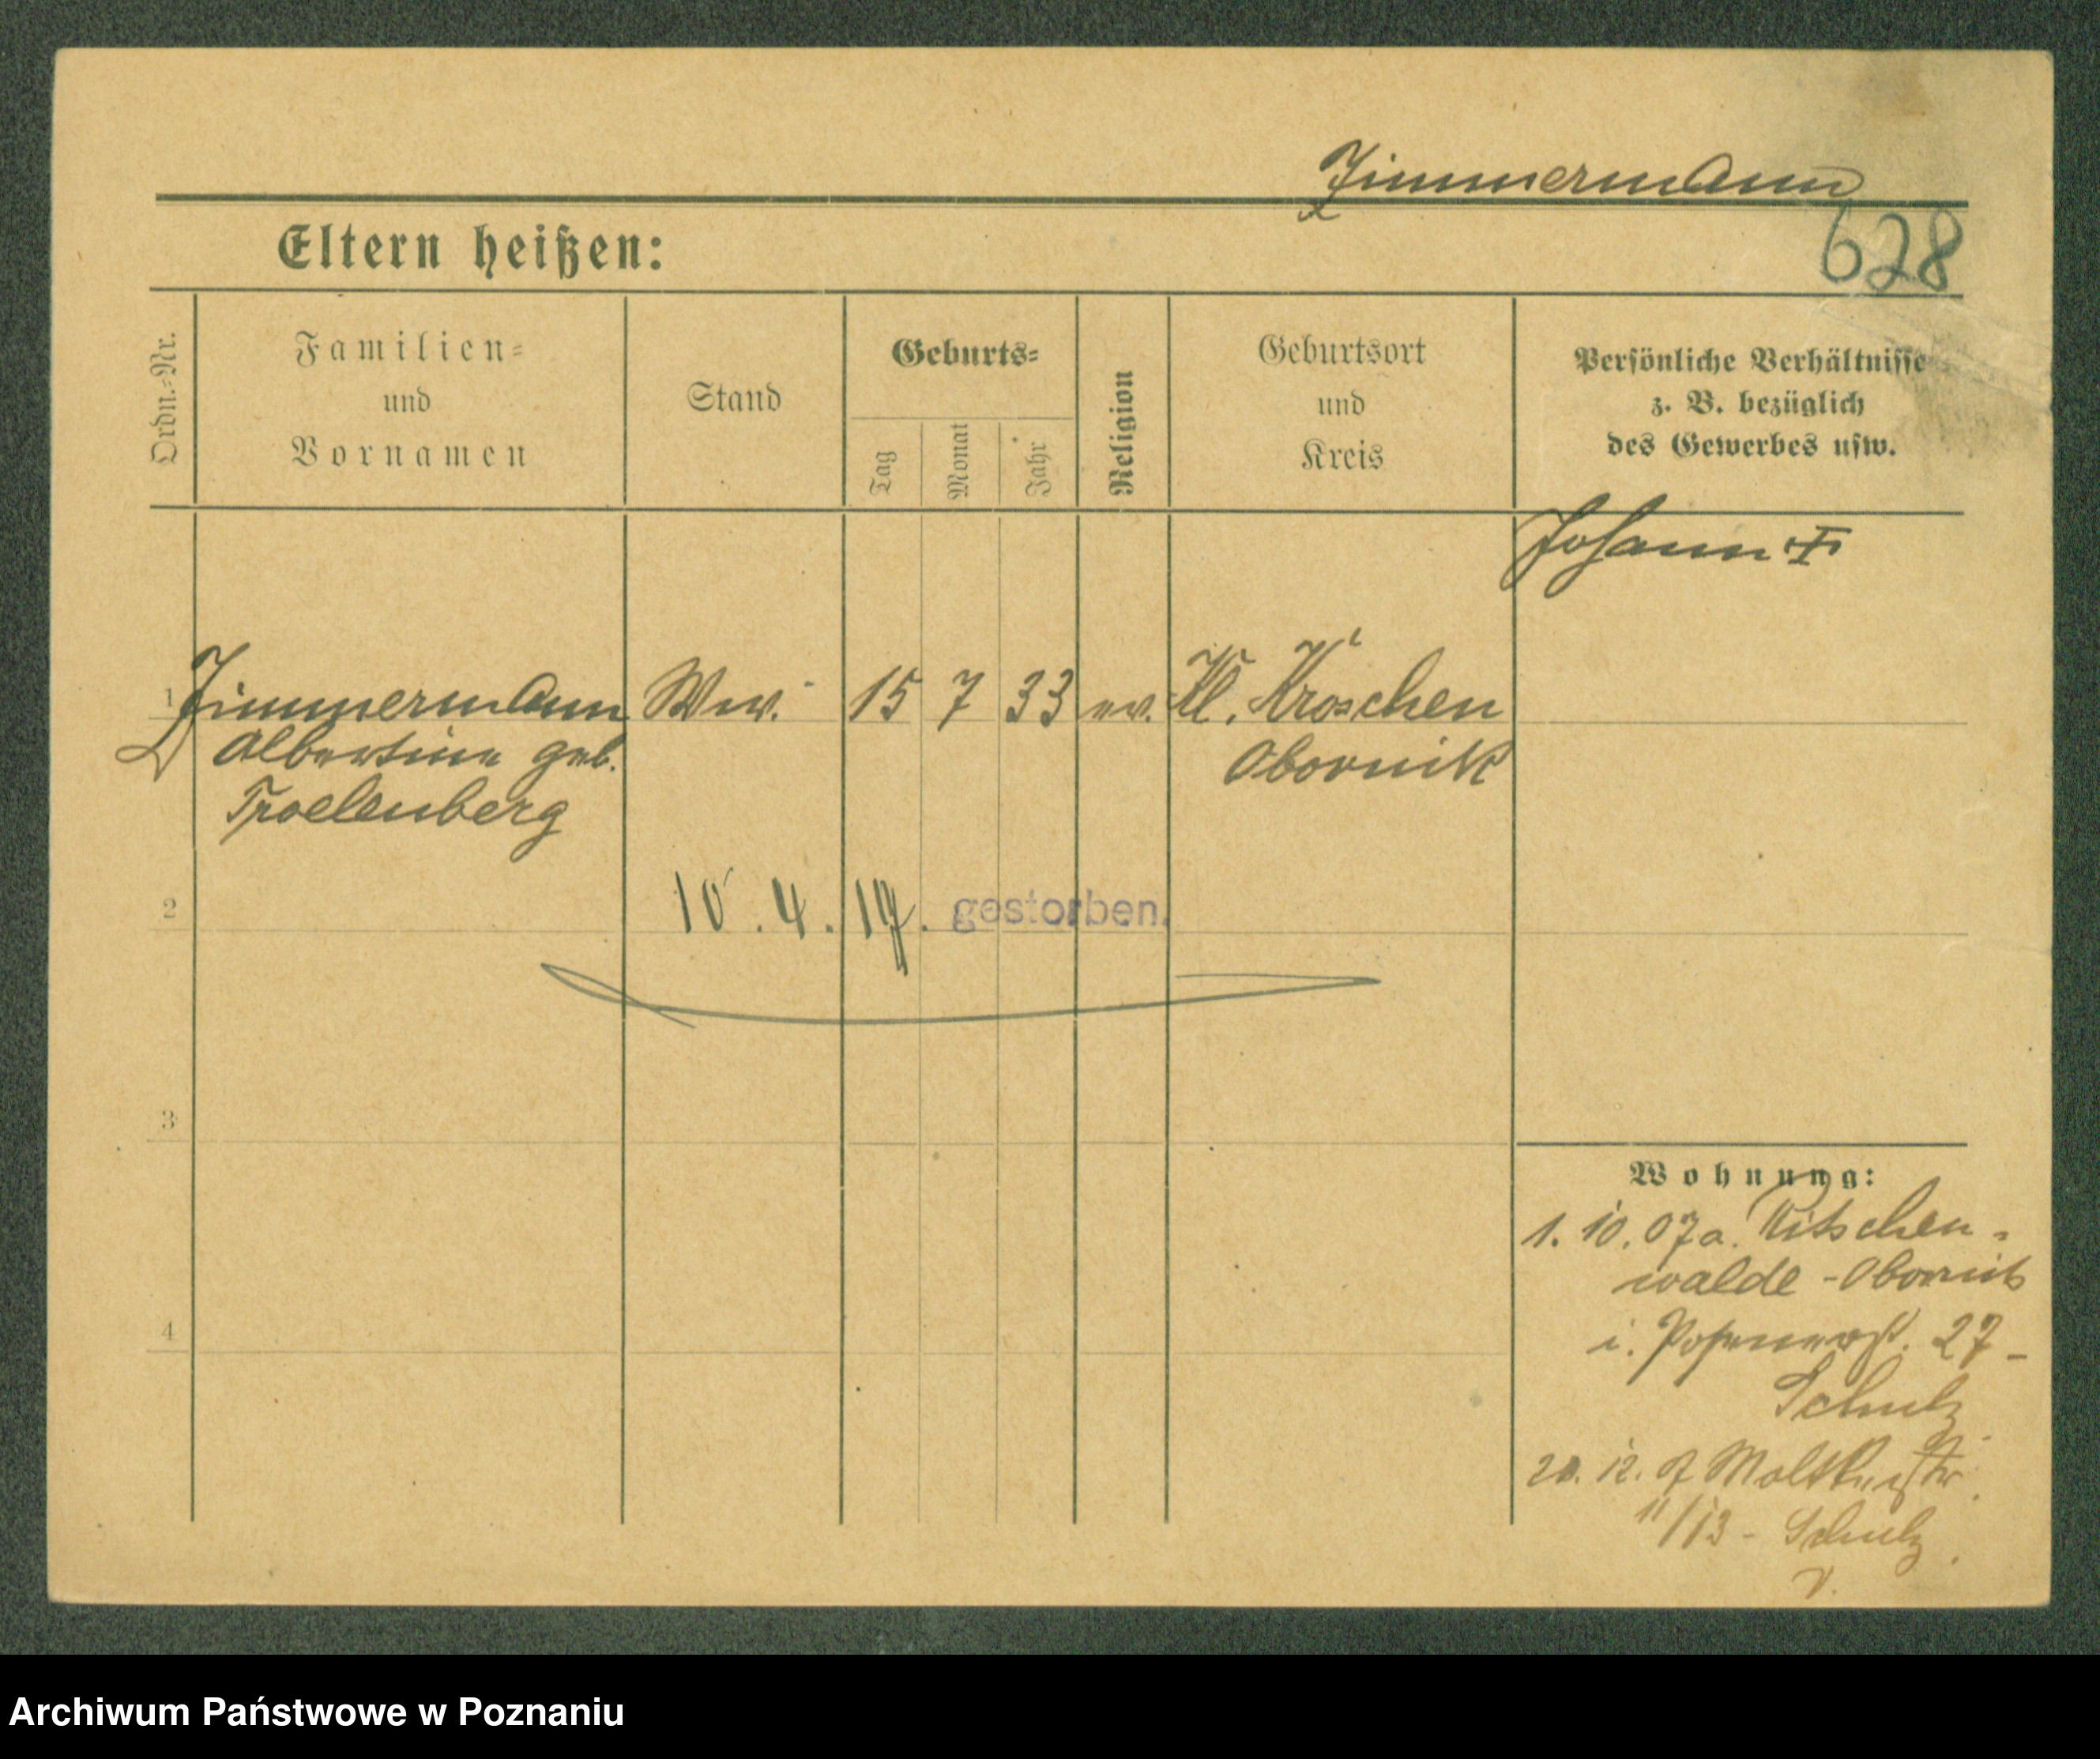 Zimmermann
628
Eltern heißen:
Ordn.-Nr.
Familien-
und
Vornamen
Stand
Geburts-
Tag
Monat
Jahr
Religion
Geburtsort
und
Kreis
Persönliche Verhältnisse
z. B. bezüglich
des Gewerbes usw.
Johann †
1 Zimmermann Ww. 15 7 33 ev. Kl. Kroschen
Albertine geb. Obornik
Troelenberg
2 10.4.17. gestorben.
3
Wohnung:
1. 10. 07 a. Ritschen-
walde - Obornik
4
i. Posenerst. 27 -
Schulz
20. 12. 7 Moltkestr.
11/13 - Schulz
Archiwum Państwowe w Poznaniu